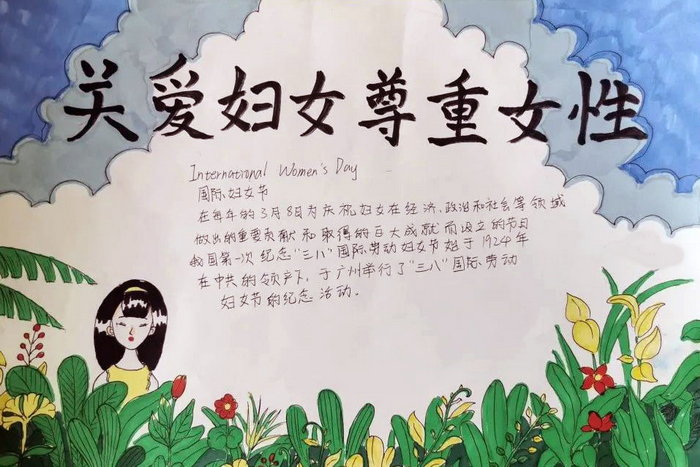 关爱妇女尊重女性
International Women's Day
国际妇女节
在每年的3月8日为庆祝妇女在经济、政治和社会等领域
做出的重要贡献和取得的巨大成就而设立的节日
我国第一次纪念“三八”国际劳动妇女节始于1924年
在中共的领导下，于广州举行了“三八”国际劳动
妇女节的纪念活动。